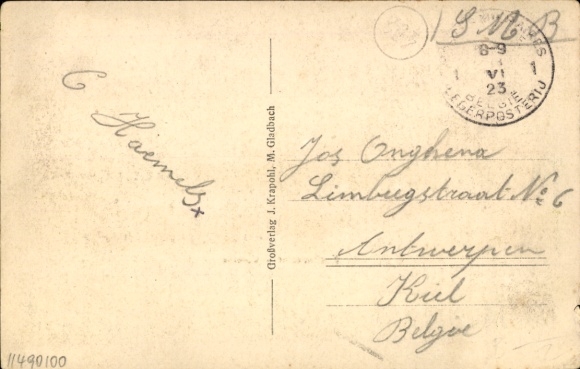 S.M.B
8-9
1 VI 1
23
BELGIË
LEGERPOSTERIJ
C
Haemels
Großverlag J. Krapohl, M. Gladbach
Jos Onghena
Limburgstraat No 6
Antwerpen
Kiel
Belgie
11490100